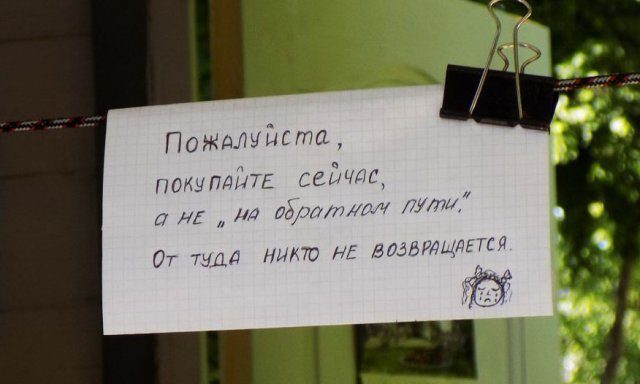 Пожалуйста,
покупайте сейчас,
а не „на обратном пути."
От туда никто не возвращается.